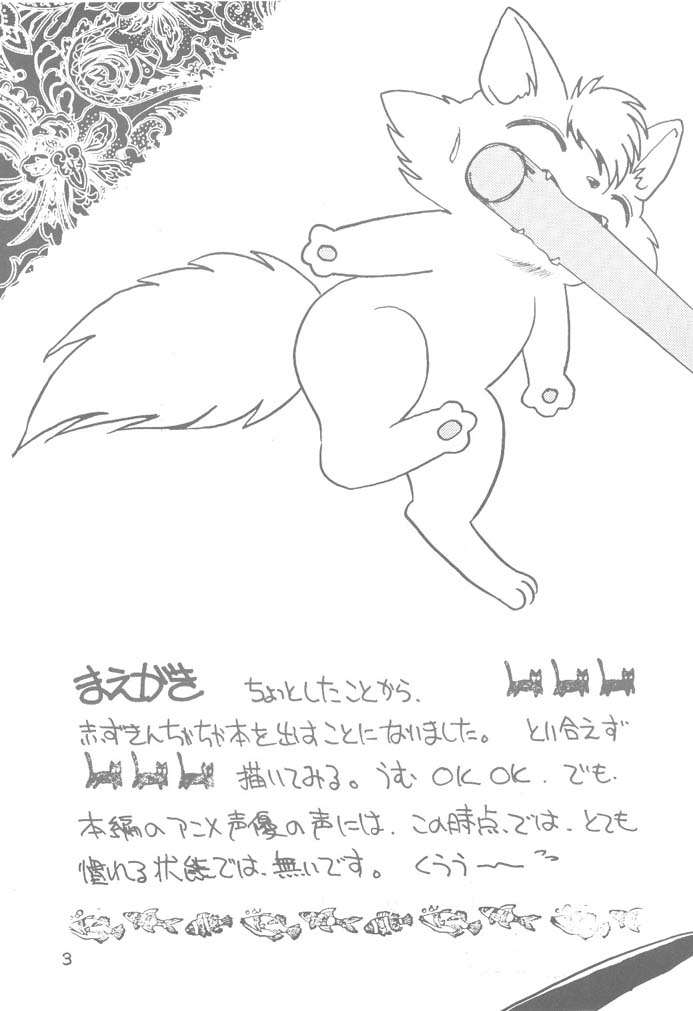 まえがき ちょっとしたことから、
赤ずきんチャチャ本を出すことになりました。 とり合えず
描いてみる。うむ OK OK、でも、
本編のアニメ声優の声には、この時点では、とても
慣れる状態では、無いです。 くうう〜〜
3